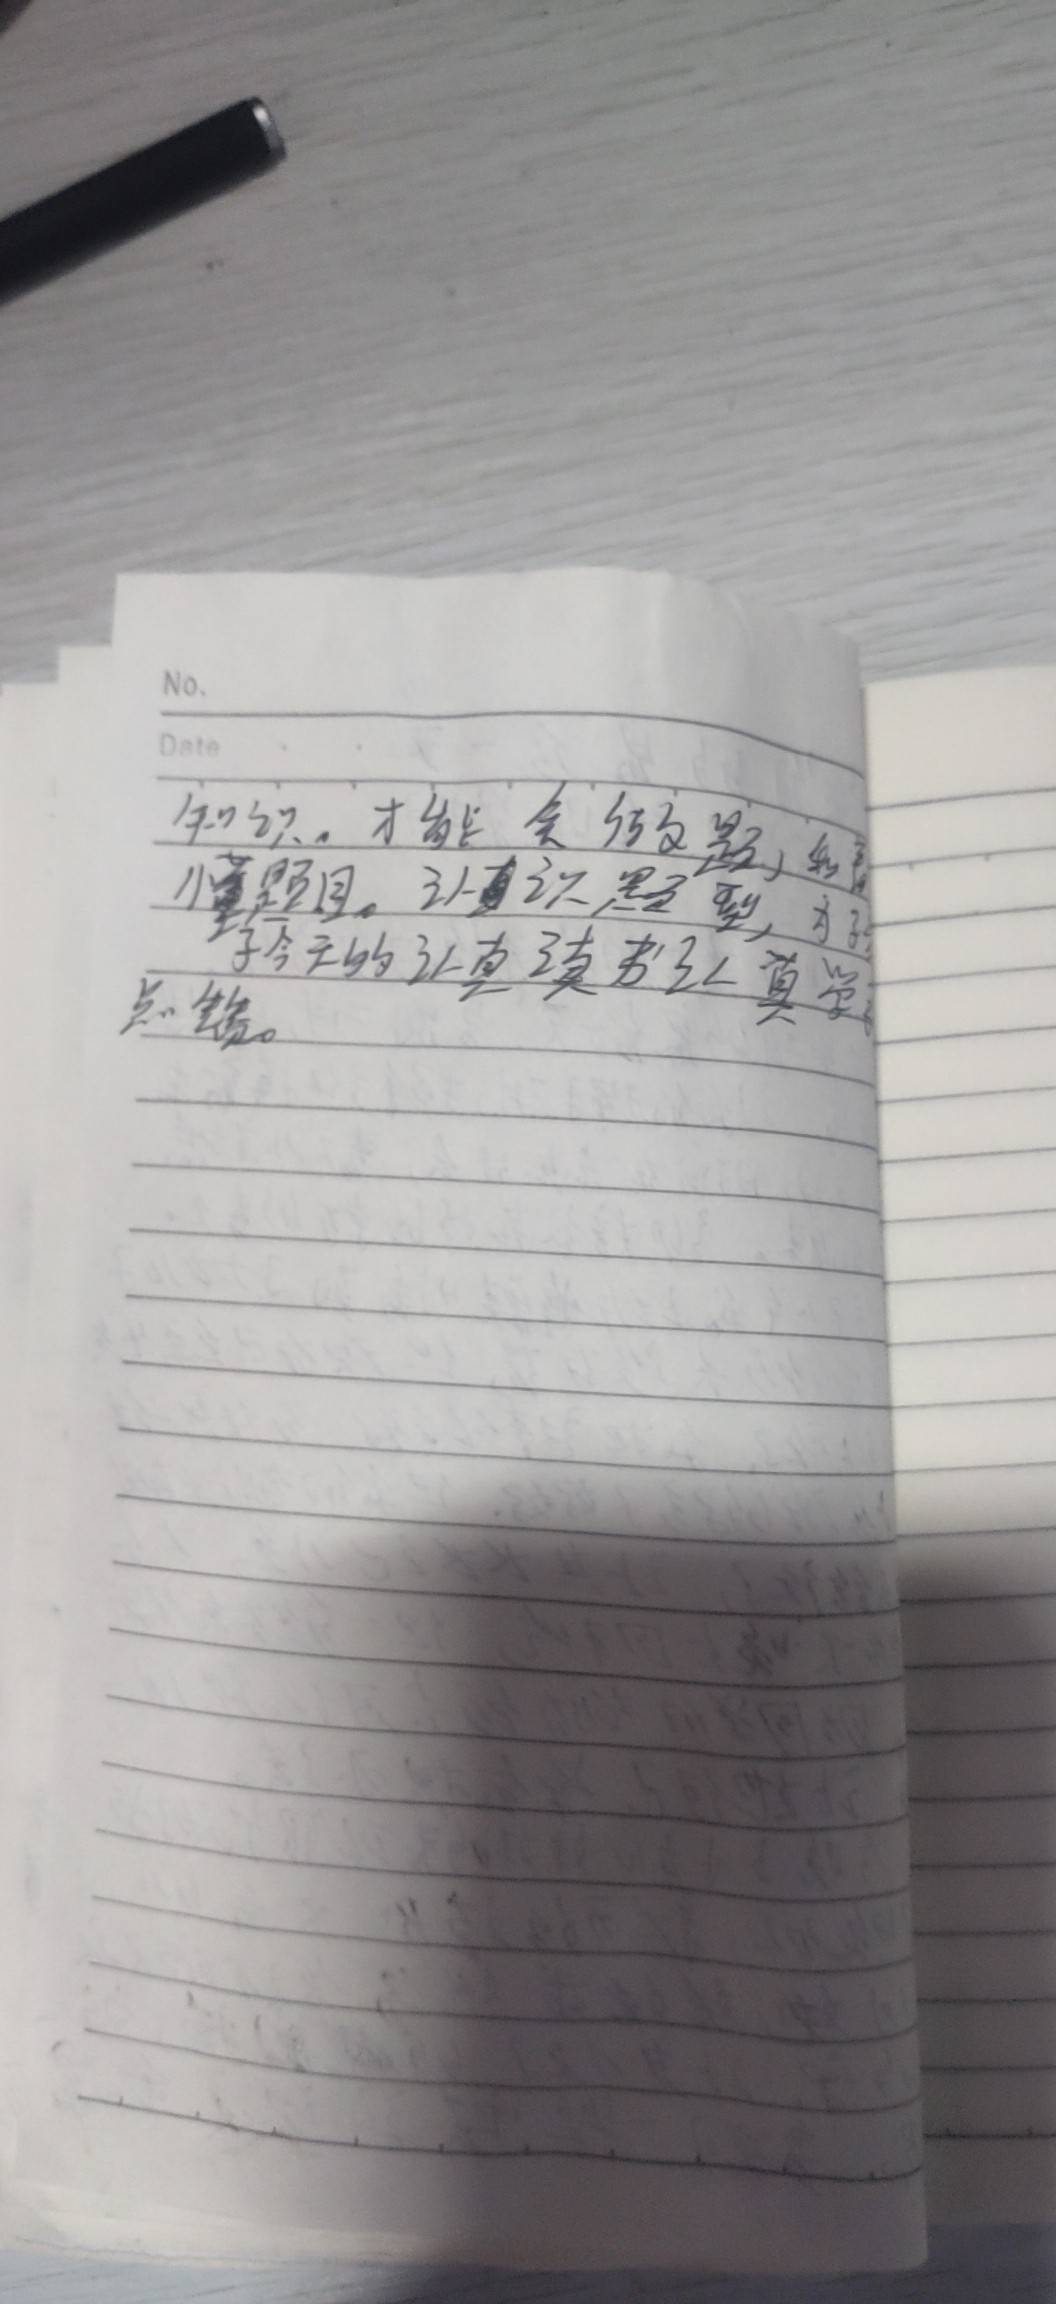 No.
Date
知识。才能会做题,和
懂题目。认真识题型,方
今天的认真读书认真学
点赞。